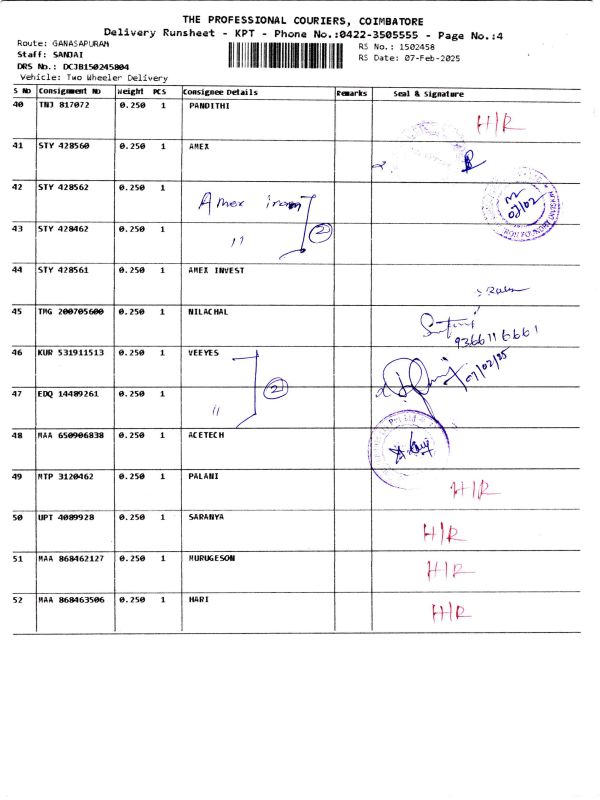 THE PROFESSIONAL COURIERS, COIMBATORE
Delivery Runsheet - KPT - Phone No.:0422-3505555 - Page No.:4
Route: GANASAPURAM
RS No.: 1502458
Staff: SANJAI
RS Date: 07-Feb-2025
DRS No.: DCJB150245804
Vehicle: Two Wheeler Delivery
S No Consignment No Weight PCS Consignee Details Remarks Seal & Signature
40 TNJ 817072 0.250 1 PANDITHI H/R
41 STY 428560 0.250 1 AMEX
42 STY 428562 0.250 1 Amex iron 07/02
43 STY 428462 0.250 1 11 2
44 STY 428561 0.250 1 AMEX INVEST
45 TMG 200705600 0.250 1 NILACHAL 9366116661
46 KUR 531911513 0.250 1 VEEYES 07/02/25
47 EDQ 14489261 0.250 1 11 2
48 MAA 650906838 0.250 1 ACETECH
49 MTP 3120462 0.250 1 PALANI H/R
50 UPT 4089928 0.250 1 SARANYA H/R
51 MAA 868462127 0.250 1 MURUGESON H/R
52 MAA 868463506 0.250 1 HARI H/R